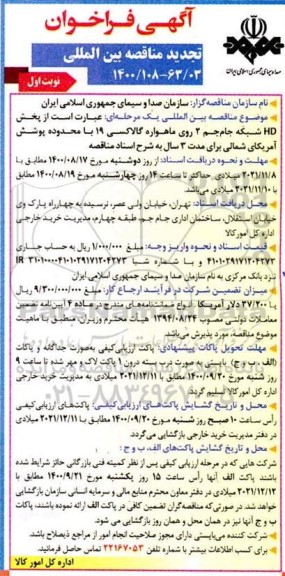 آگهی فراخوان
تجدید مناقصه بین المللی
۱۴۰۰/۱۰۸-۶۳/۰۳
صدا و سیمای جمهوری اسلامی ایران
نوبت اول
نام سازمان مناقصه‌گزار: سازمان صدا و سیمای جمهوری اسلامی ایران
موضوع مناقصه بین المللی یک مرحله‌ای: عبارت است از پخش
HD شبکه جام‌جم ۲ روی ماهواره گالاکسی ۱۹ با محدوده پوشش
آمریکای شمالی برای مدت ۳ سال به شرح اسناد مناقصه
مهلت و نحوه دریافت اسناد: از روز دوشنبه مورخ ۱۴۰۰/۰۸/۱۷ مطابق با
۲۰۲۱/۱۱/۸ میلادی حداکثر تا ساعت ۱۴ روز چهارشنبه مورخ ۱۴۰۰/۰۸/۱۹ مطابق
با ۲۰۲۱/۱۱/۱۰ میلادی می‌باشد.
محل دریافت اسناد: تهران، خیابان ولی عصر، نرسیده به چهارراه پارک وی
خیابان استقلال، ساختمان اداری جام جم، طبقه چهارم، مدیریت خرید خارجی
اداره کل امور کالا
قیمت اسناد و نحوه واریز وجه: مبلغ ۱/۰۰۰/۰۰۰ ریال به حساب جاری
۴۱۰۱۰۲۹۱۷۱۲۰۴۲۷۳ و با شماره شبا IR ۳۱۰۱۰۰۰۰۴۱۰۱۰۲۹۱۷۱۲۰۴۲۷۳
نزد بانک مرکزی به نام سازمان صدا و سیمای جمهوری اسلامی ایران
میزان تضمین شرکت در فرآیند ارجاع کار: مبلغ ۹/۳۰۰/۰۰۰/۰۰۰ ریال
یا ۳۷/۲۰۰ دلار آمریکا انواع ضمانتنامه‌های مندرج در ماده ۴ آیین‌نامه تضمین
معاملات دولتی مصوب ۱۳۹۴/۰۸/۲۴ هیأت محترم وزیران، منطبق با ماهیت
موضوع مناقصه، مورد پذیرش می‌باشد
مهلت تحویل پاکات پیشنهادی: پاکت ارزیابی کیفی به‌صورت جداگانه و پاکات
(الف، ب و ج) بایستی به صورت در بسته درون ۱ پاکت لاک و مهر شده تا ساعت ۹
روز شنبه مورخ ۱۴۰۰/۰۹/۲۰ مطابق با ۲۰۲۱/۱۲/۱۱ میلادی به مدیریت خرید خارجی
اداره کل امورکالا تسلیم گردد
محل و تاریخ گشایش پاکت‌های ارزیابی کیفی: پاکت‌های ارزیابی کیفی
رأس ساعت ۱۰ صبح روز شنبه مورخ ۱۴۰۰/۰۹/۲۰ مطابق با ۲۰۲۱/۱۲/۱۱ میلادی
در دفتر مدیریت خرید خارجی بازگشایی می‌گردد.
محل و تاریخ گشایش پاکت‌های الف، ب و ج:
شرکت هایی که در مرحله ارزیابی کیفی پس از نظر کمیته فنی بازرگانی حائز شرایط شده
باشند پاکت الف آنها رأس ساعت ۱۵ روز یکشنبه مورخ ۱۴۰۰/۹/۲۱ مطابق با
۲۰۲۱/۱۲/۱۲ میلادی در دفتر معاون محترم منابع مالی و سرمایه انسانی سازمان بازگشایی
خواهد شد. در صورتی‌که مناقصه‌گران تضمین کافی در پاکت الف ارائه نموده باشند، پاکات
ب و ج آنها نیز در همان محل و همان روز بازگشایی می شود.
شرکت کننده می‌بایستی دارای مجوز صلاحیت انجام امور از مراجع ذیصلاح باشد.
برای کسب اطلاعات بیشتر با شماره تلفن ۲۲۱۶۷۰۵۳ تماس حاصل فرمائید.
اداره کل امور کالا